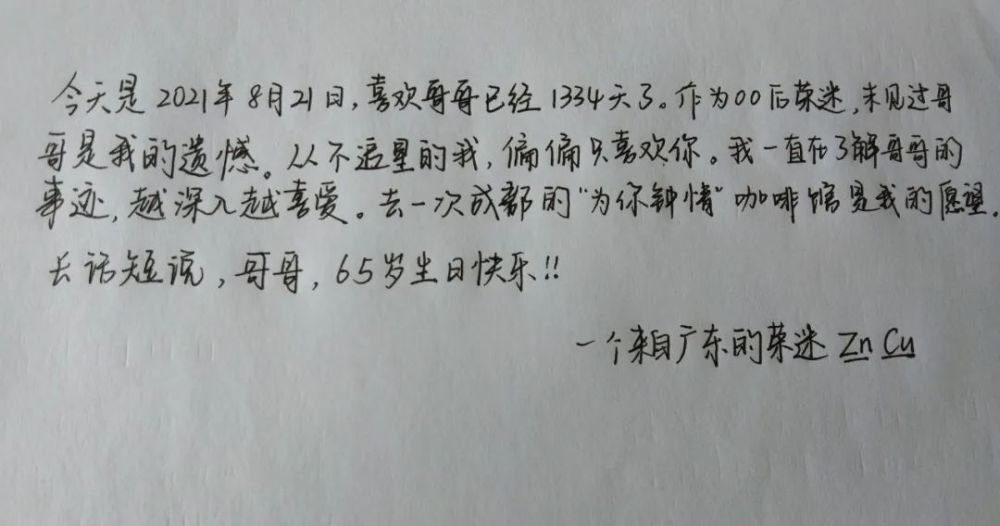 今天是2021年8月21日,喜欢哥哥已经1334天了。作为00后荣迷,未见过哥
哥是我的遗憾。从不追星的我,偏偏只喜欢你。我一直在了解哥哥的
事迹,越深入越喜爱。去一次成都的"为你钟情"咖啡馆是我的愿望。
长话短说,哥哥,65岁生日快乐!!
一个来自广东的荣迷 Zn Cu